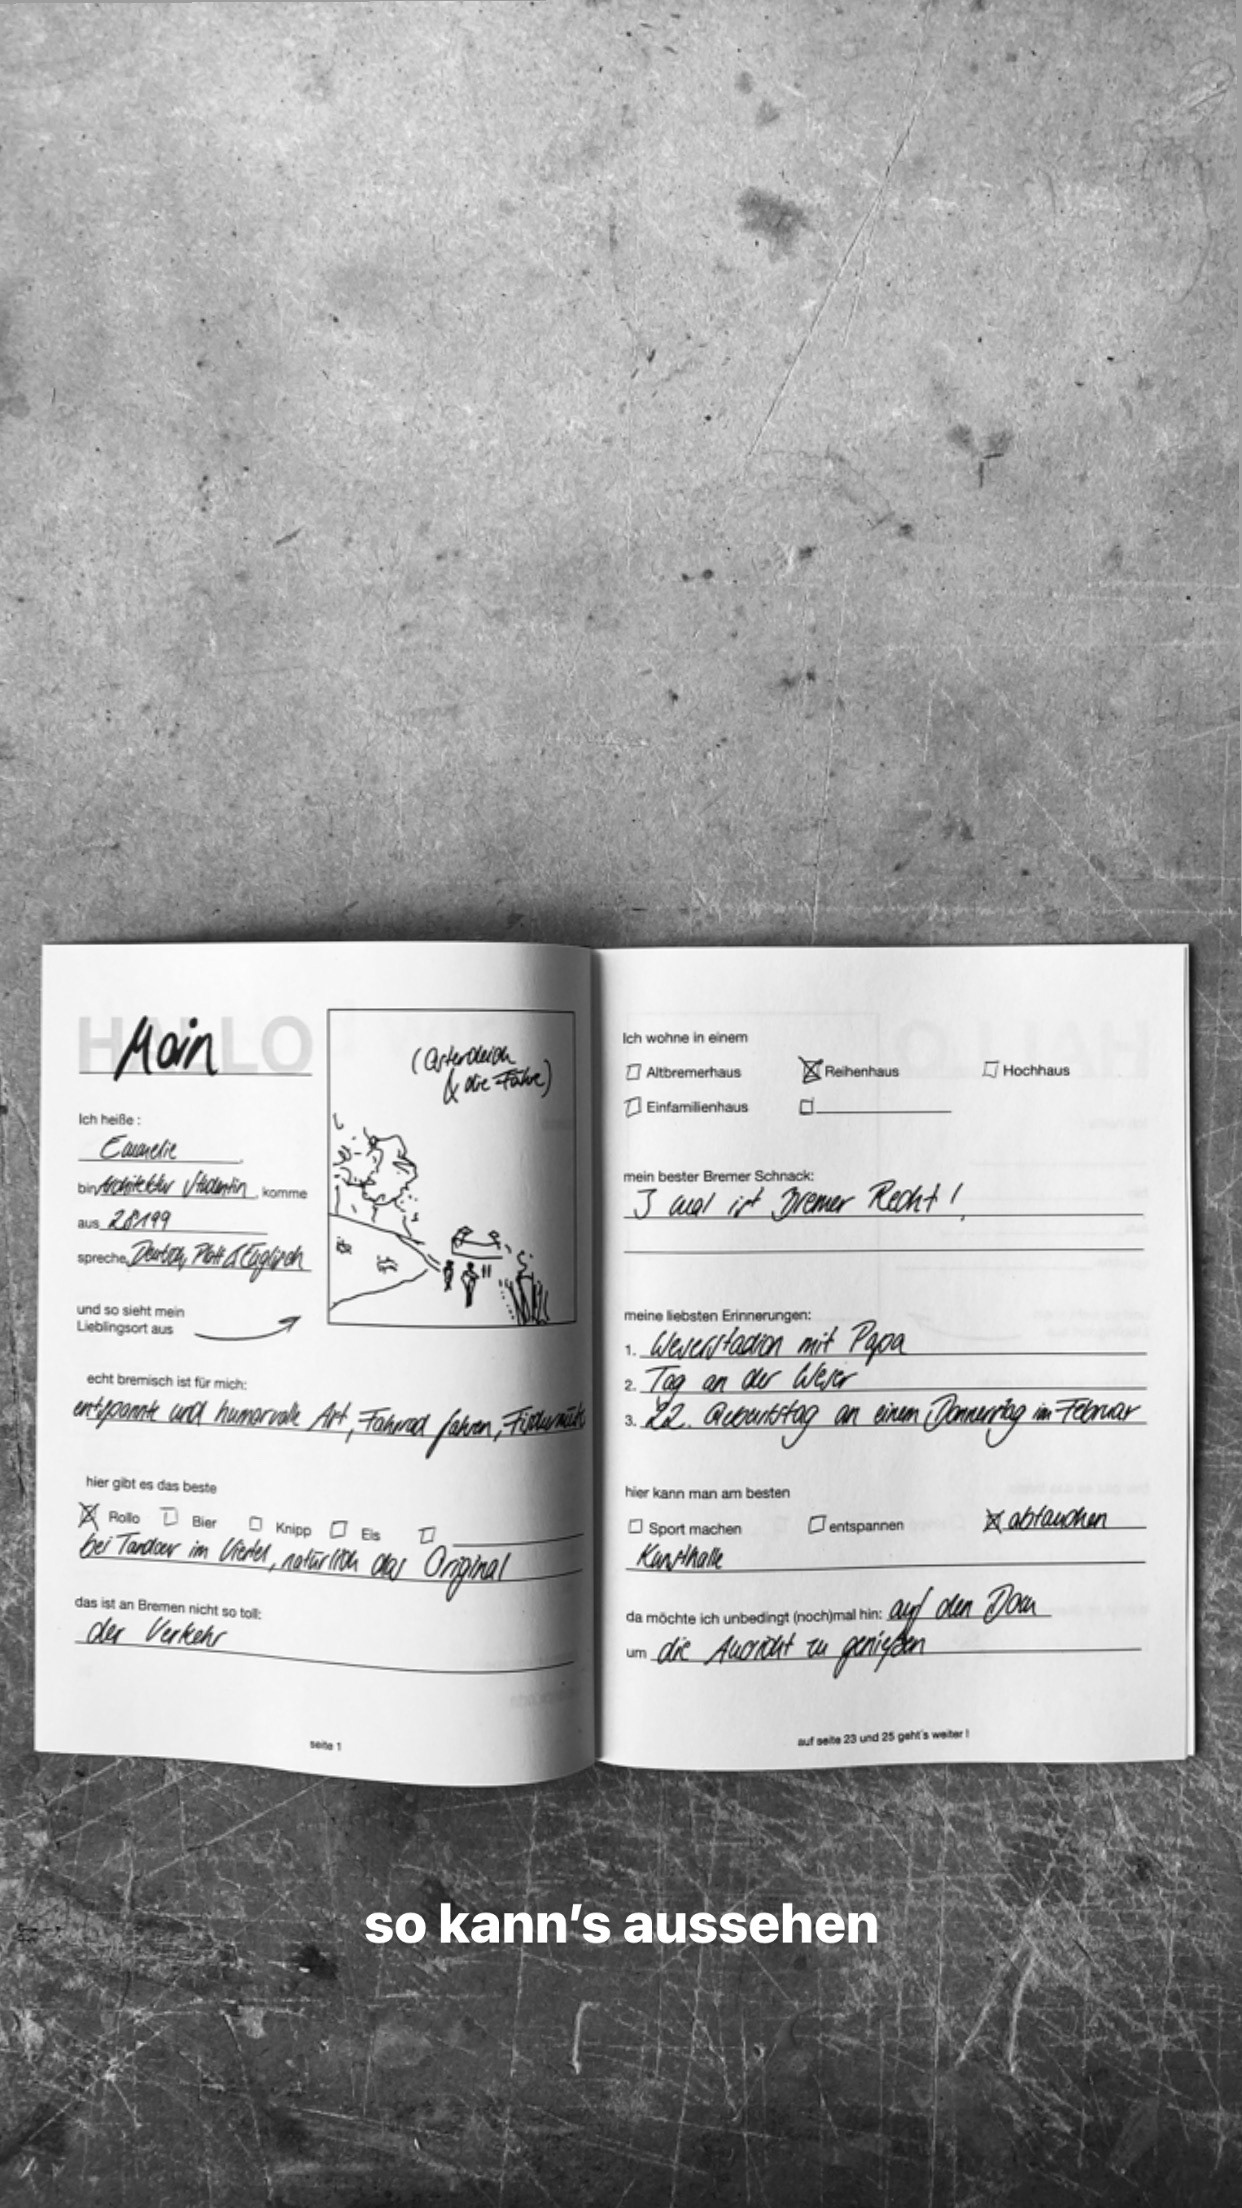 HALLO
Moin
(Osterdeich
& die Fähre)
Ich heiße :
bin Architektur Studentin, komme
aus 28199
spreche Deutsch, Platt & Englisch
und so sieht mein
Lieblingsort aus
echt bremisch ist für mich:
entspannte und humorvolle Art, Fahrrad fahren,
hier gibt es das beste
Rollo Bier Knipp Eis
bei Tandour im Viertel, natürlich das Original
das ist an Bremen nicht so toll:
der Verkehr
seite 1
Ich wohne in einem
Altbremerhaus Reihenhaus Hochhaus
Einfamilienhaus
mein bester Bremer Schnack:
3 mal ist Bremer Recht!
meine liebsten Erinnerungen:
1. Weserstadion mit Papa
2. Tag an der Weser
3. 22. Geburtstag an einem Donnerstag im Februar
hier kann man am besten
Sport machen entspannen abtauchen
Kunsthalle
da möchte ich unbedingt (noch)mal hin: auf den Dom
um die Aussicht zu genießen
auf seite 23 und 25 geht's weiter !
so kann's aussehen